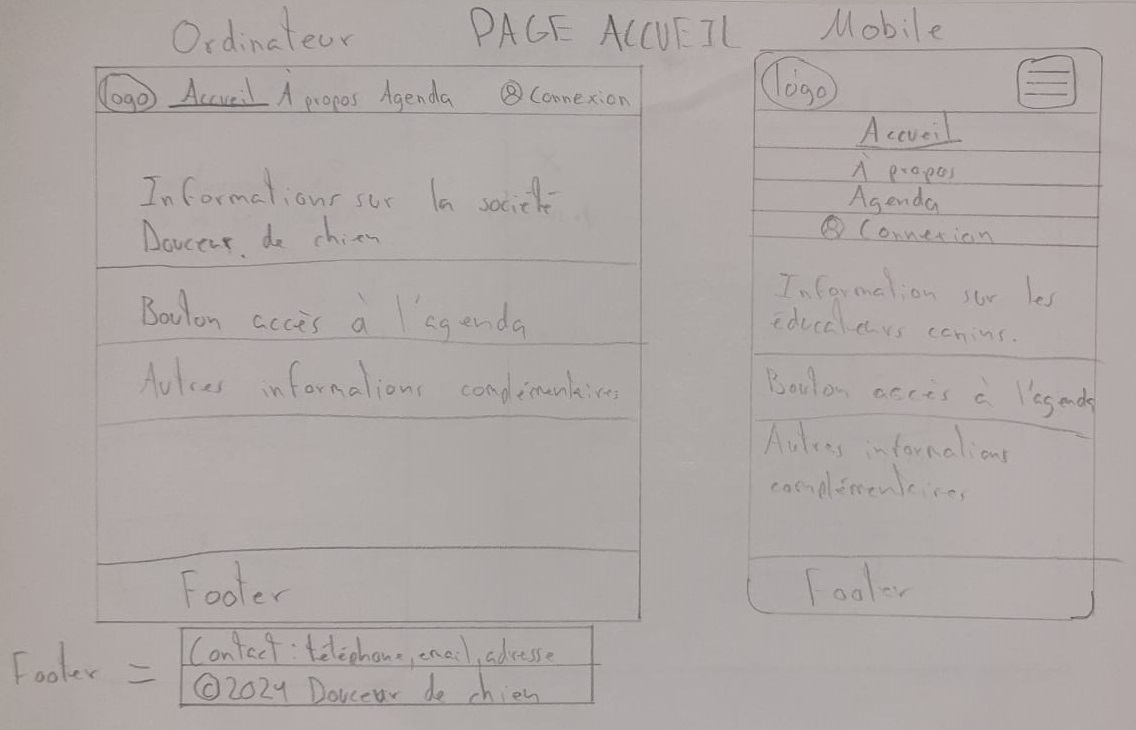 Ordinateur PAGE ACCUEIL Mobile
logo Accueil À propos Agenda Connexion
Informations sur la société
Douceur de chien
Bouton accès à l'agenda
Autres informations complémentaires
Footer
logo
Accueil
À propos
Agenda
Connexion
Information sur les
éducateurs canins.
Bouton accès à l'agenda
Autres informations
complémentaires
Footer
Footer =
Contact : téléphone, email, adresse
©2024 Douceur de chien